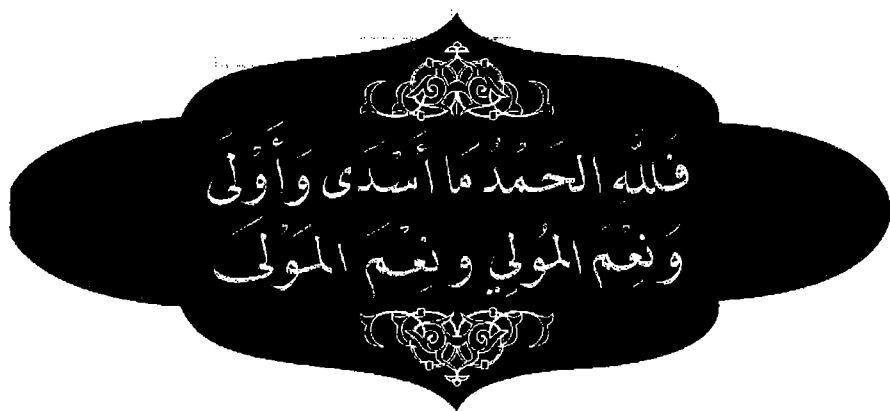 فَلِلَّهِ الحَمْدُ مَا أَسْدَى وَأَوْلَى
وَنِعْمَ المُولِي ونِعْمَ المَوْلَى